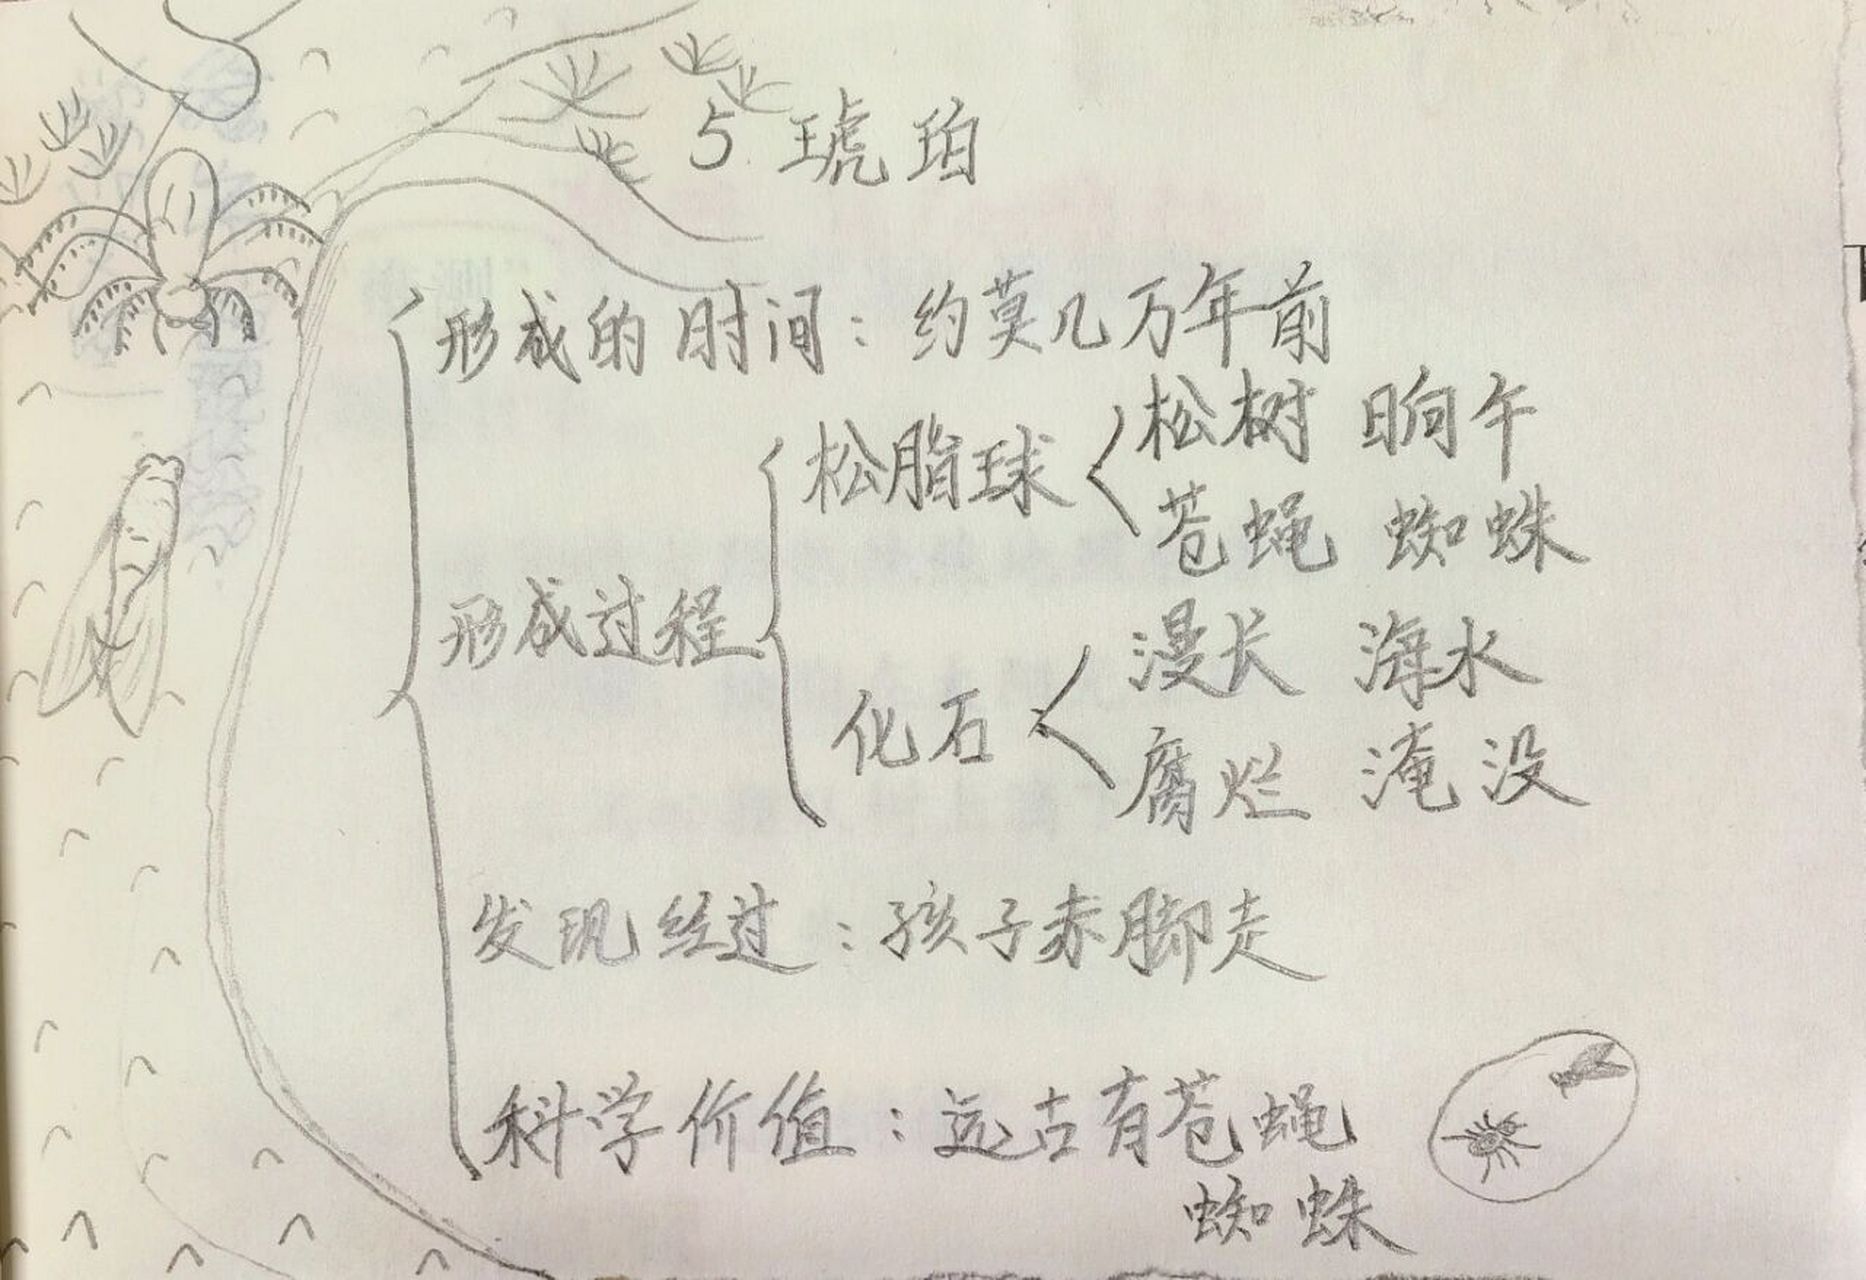 5 琥珀
形成的时间：约莫几万年前
松脂球 松树 晌午
苍蝇 蜘蛛
形成过程
漫长 海水
化石
腐烂 淹没
发现经过：孩子赤脚走
科学价值：远古有苍蝇
蜘蛛